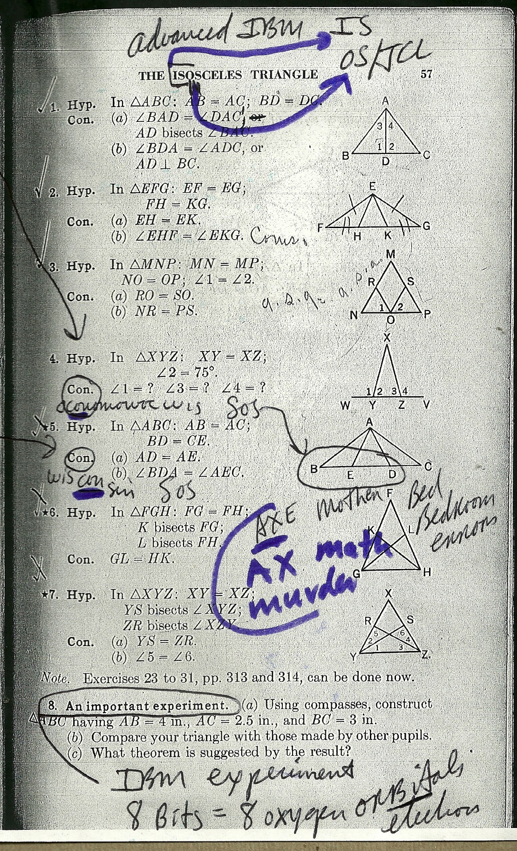 advanced IBM IS
OS/JCL
THE ISOSCELES TRIANGLE 57
1. Hyp. In △ABC: AB = AC; BD = DC.
Con. (a) ∠BAD = ∠DAC, or
AD bisects ∠BAC.
(b) ∠BDA = ∠ADC, or
AD ⊥ BC.
A
3 4
1 2
B D C
2. Hyp. In △EFG: EF = EG;
FH = KG.
Con. (a) EH = EK.
(b) ∠EHF = ∠EKG.
E
F H K G
3. Hyp. In △MNP: MN = MP;
NO = OP; ∠1 = ∠2.
Con. (a) RO = SO.
(b) NR = PS.
a.s.a. = a.s.a.
M
R S
1 2
N O P
4. Hyp. In △XYZ: XY = XZ;
∠2 = 75°.
Con. ∠1 = ? ∠3 = ? ∠4 = ?
X
1 2 3 4
W Y Z V
oconomowoc wis SoS
★5. Hyp. In △ABC: AB = AC;
BD = CE.
Con. (a) AD = AE.
(b) ∠BDA = ∠AEC.
A
B E D C
wisconsin SoS
★6. Hyp. In △FGH: FG = FH;
K bisects FG;
L bisects FH.
Con. GL = HK.
K L
G H
AXE Mother Bed
Bedroom
errors
AX math
murder
★7. Hyp. In △XYZ: XY = XZ;
YS bisects ∠XYZ;
ZR bisects ∠XZY.
Con. (a) YS = ZR.
(b) ∠5 = ∠6.
X
R S
5 6
2 4
1 3
Y Z
Note. Exercises 23 to 31, pp. 313 and 314, can be done now.
8. An important experiment. (a) Using compasses, construct
△ABC having AB = 4 in., AC = 2.5 in., and BC = 3 in.
(b) Compare your triangle with those made by other pupils.
(c) What theorem is suggested by the result?
IBM experiment
8 Bits = 8 oxygen orBitals
electrons